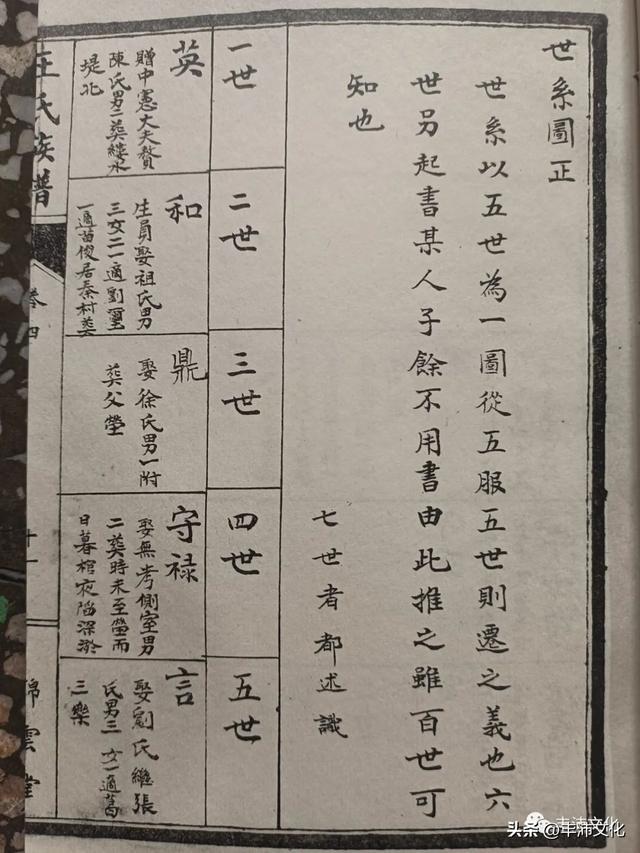 世系圖正
世系以五世為一圖從五服五世則遷之義也六
世另起書某人子餘不用書由此推之雖百世可
知也
七世者都述識
一世
二世
三世
四世
五世
英
贈中憲大夫贅
陳氏男二葬縷水
堤北
和
生員娶祖氏男
三女二一適劉璽
一適苗俊居秦村葬
鼎
娶徐氏男一附
葬父塋
守祿
娶無考側室男
二葬時未至塋而
日暮棺夜陷深淤
言
娶劉氏繼張
氏男三女一適葛
三樂
氏族譜
卷四
十一
錦雲堂
丰沛文化
头条@丰沛文化